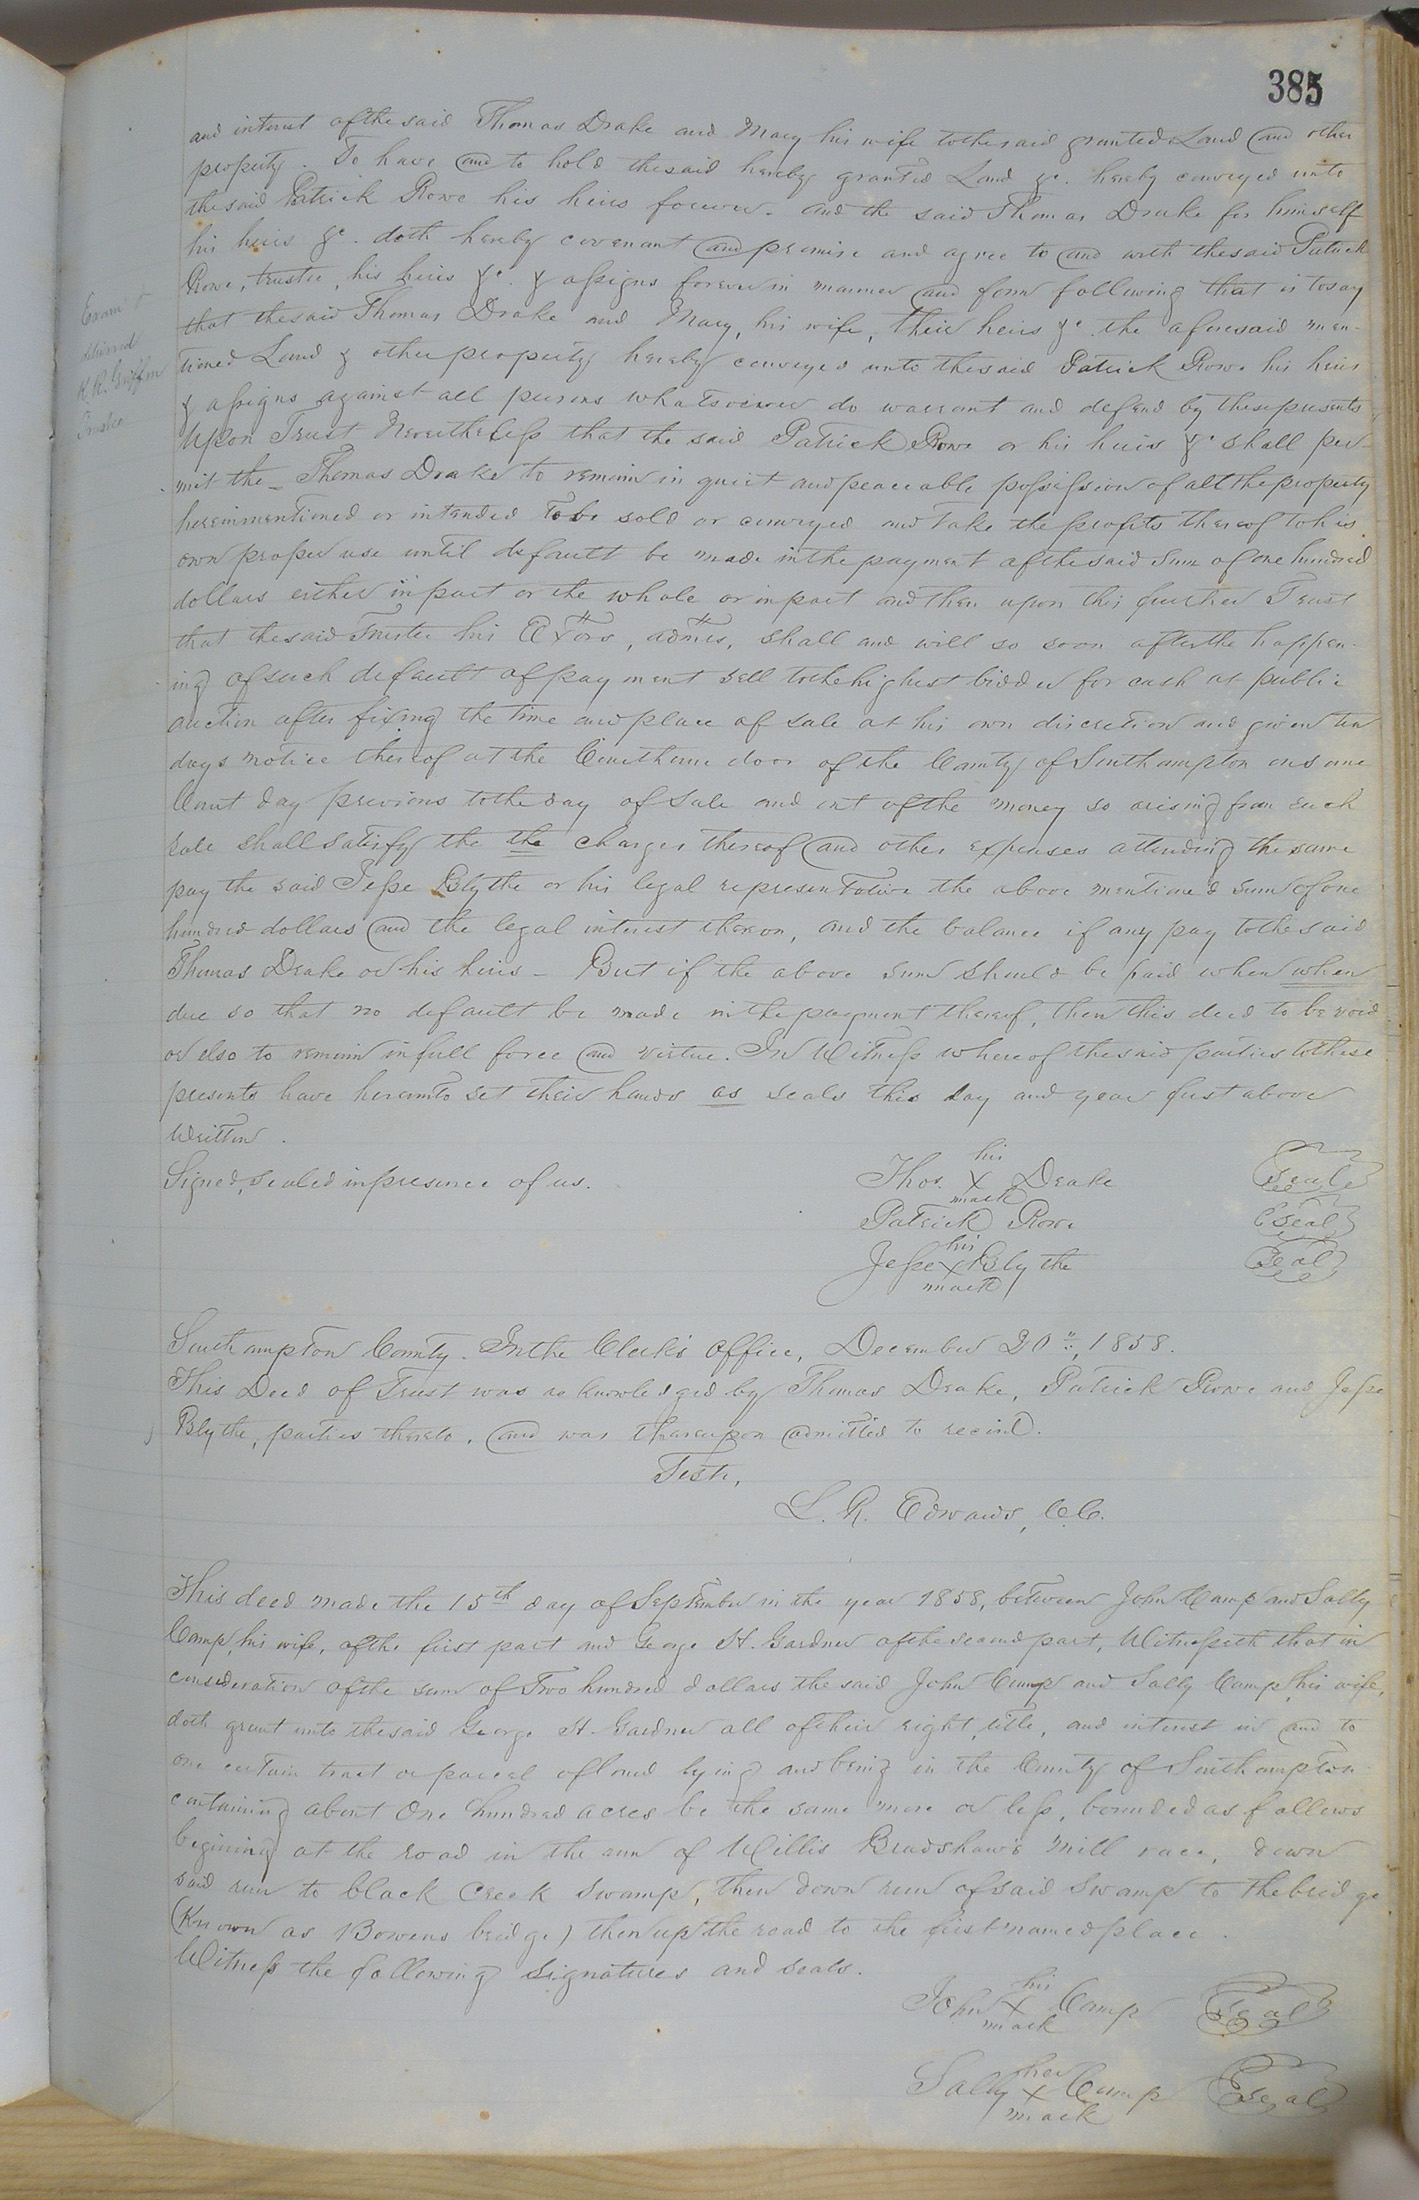 385
and interest of the said Thomas Drake and Mary his wife to the said granted Land and other
property. To have and to hold the said hereby granted Land &c. hereby conveyed unto
the said Patrick Rowe his heirs forever. and the said Thomas Drake for himself
his heirs &c. doth hereby covenant and promise and agree to and with the said Patrick
Rowe, trustee, his heirs &c. & assigns forever in manner and form following that is to say
that the said Thomas Drake and Mary, his wife, their heirs &c the aforesaid men-
tioned Land & other property hereby conveyed unto the said Patrick Rowe his heirs
& assigns against all persons whatsoever do warrant and defend by these presents
Upon Trust Nevertheless that the said Patrick Rowe or his heirs &c shall per-
mit the Thomas Drake to remain in quiet and peaceable possession of all the property
hereinmentioned or intended to be sold or conveyed and take the profits thereof to his
own proper use until default be made in the payment of the said Sum of one hundred
dollars either in part or the whole or in part and then upon this further Trust
that the said Trustee his Exors, admrs, shall and will so soon after the happen-
ing of such default of payment sell to the highest bidder for cash at public
auction after fixing the time and place of sale at his own discretion and given ten
days notice thereof at the Courthouse door of the County of Southampton on some
Court day previous to the day of Sale and out of the money so arising from such
sale shall satisfy the the charges thereof and other expenses attending the same
pay the said Jesse Blythe or his legal representative the above mentioned sum of one
hundred dollars and the legal interest thereon, and the balance if any pay to the said
Thomas Drake or his heirs - But if the above sum should be paid when when
due so that no default be made in the payment thereof, then this deed to be void
or else to remain in full force and virtue. In Witness whereof the said parties to these
presents have hereunto set their hands as seals this day and year first above
Written.
Signed, sealed in presence of us.
his
Thos. X Drake Seal
mark
Patrick Rowe Seal
his
Jesse X Blythe Seal
mark
Exam'd
K. R. Griffin
Trustee
Southampton County. In the Clerk's Office, December 20th, 1858.
This Deed of Trust was acknowledged by Thomas Drake, Patrick Rowe and Jesse
Blythe, parties thereto, and was thereupon admitted to record.
Teste,
L. R. Edwards, C.C.
This deed made the 15th day of September in the year 1858, between John Camp and Sally
Camp, his wife, of the first part and George H. Gardner of the second part, Witnesseth that in
consideration of the sum of Two hundred dollars the said John Camp and Sally Camp, his wife,
doth grant unto the said George H. Gardner all of their right, title, and interest in and to
one certain tract or parcel of land lying and being in the County of Southampton
containing about One hundred acres be the same more or less, bounded as follows
begining at the road in the run of Willis Bradshaw's mill race, down
said run to black Creek Swamp, then down run of said Swamp to the bridge
(Known as Bowens bridge) then up the road to the first named place.
Witness the following Signatures and seals.
his
John X Camp Seal
mark
her
Sally X Camp Seal
mark